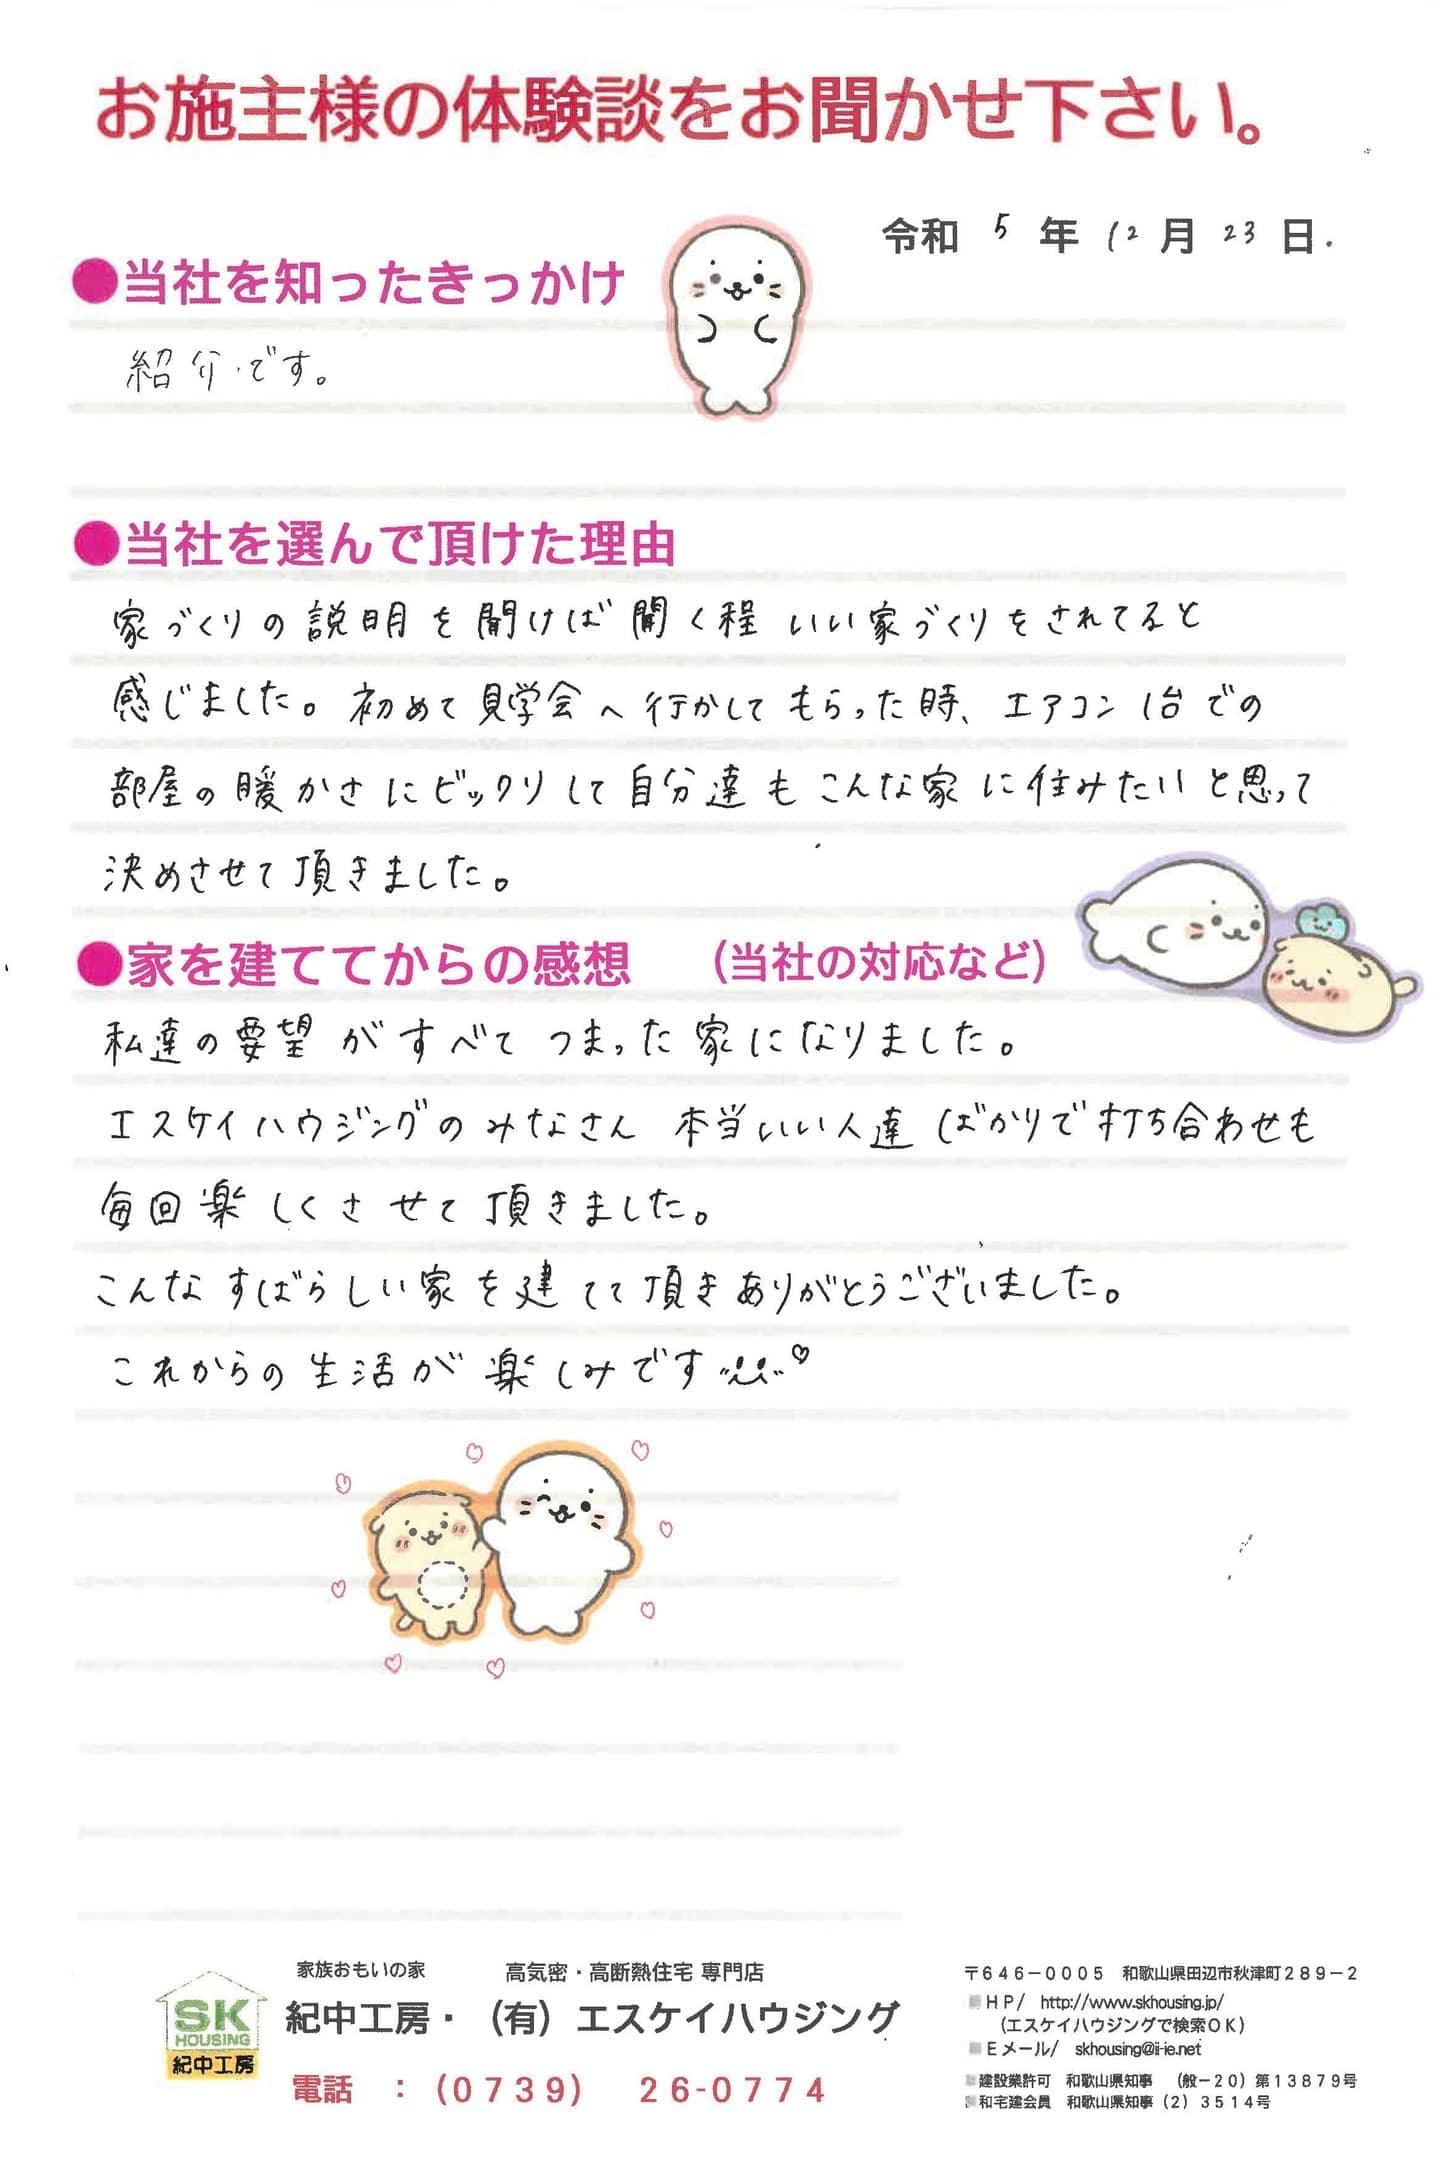 お施主様の体験談をお聞かせ下さい。
令和 5 年 12 月 23 日.
●当社を知ったきっかけ
紹介です。
●当社を選んで頂けた理由
家づくりの説明を聞けば聞く程 いい家づくりをされてると
感じました。初めて見学会へ行かしてもらった時、エアコン1台での
部屋の暖かさにビックリして自分達もこんな家に住みたいと思って
決めさせて頂きました。
●家を建ててからの感想 （当社の対応など）
私達の要望がすべてつまった家になりました。
エスケイハウジングのみなさん 本当いい人達ばかりで打ち合わせも
毎回楽しくさせて頂きました。
こんなすばらしい家を建てて頂きありがとうございました。
これからの生活が楽しみです♡
SK
HOUSING
紀中工房
家族おもいの家 高気密・高断熱住宅 専門店
紀中工房・（有）エスケイハウジング
電話 ：（0739） 26-0774
〒646－0005 和歌山県田辺市秋津町289－2
■HP/ http://www.skhousing.jp/
（エスケイハウジングで検索OK）
■Eメール/ skhousing@i-ie.net
■建設業許可 和歌山県知事 （般－20）第13879号
■和宅建会員 和歌山県知事（2）3514号